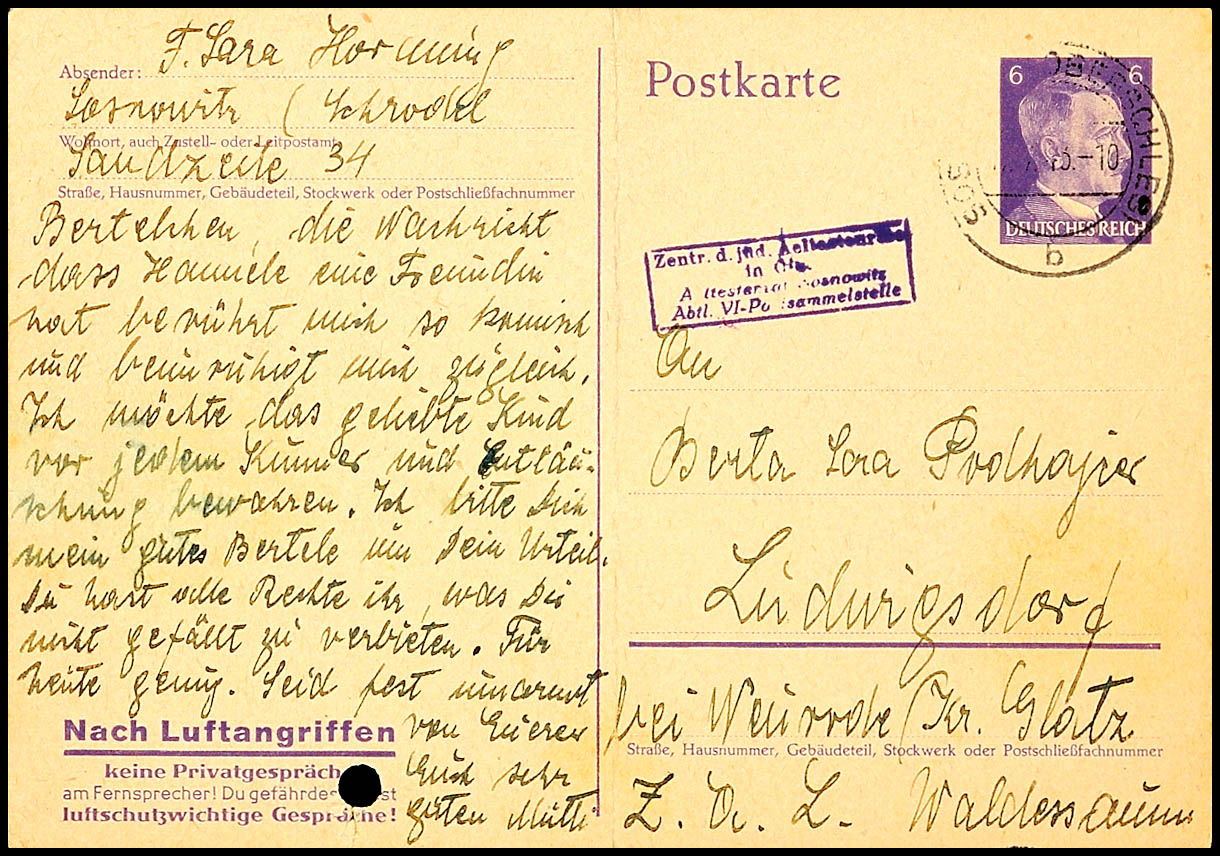 F. Sara Hornung
Absender:
Sosnowitz (Schrodel
Wohnort, auch Zustell- oder Leitpostamt
Sandzeile 34
Straße, Hausnummer, Gebäudeteil, Stockwerk oder Postschließfachnummer
Bertelchen, die Nachricht
dass Hannele eine Freundin
hat berührt mich so komisch
und beunruhigt mich zugleich.
Ich möchte das geliebte Kind
vor jedem Kummer und Enttäu-
schung bewahren. Ich bitte Dich
mein gutes Bertele um Dein Urteil.
Du hast alle Rechte ihr, was Dir
nicht gefällt zu verbieten. Für
heute genug. Seid fest umarmt
von Euerer
Euch sehr
guten Mutti
Nach Luftangriffen
keine Privatgespräch
am Fernsprecher! Du gefährdes st
luftschutzwichtige Gespräche!
Postkarte
6 6
DEUTSCHES REICH
OBERSCHLES
SOS
43.-10
b
Zentr. d. jüd. Aeltestenräte
in
Aeltestenrat Sosnowitz
Abtl. VI-Postsammelstelle
An
Berta Sara Podhajcer
Ludwigsdorf
bei Neurode/Kr. Glatz
Straße, Hausnummer, Gebäudeteil, Stockwerk oder Postschließfachnummer
Z. A. L. Waldessaum